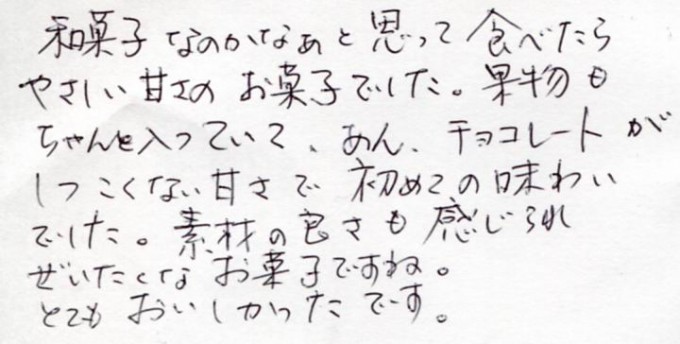 和菓子なのかなぁと思って食べたら
やさしい甘さの お菓子でした。果物も
ちゃんと入っていて、あん、チョコレートが
しつこくない甘さで 初めての味わい
でした。素材の良さも感じられ
ぜいたくな お菓子ですね。
とても おいしかったです。